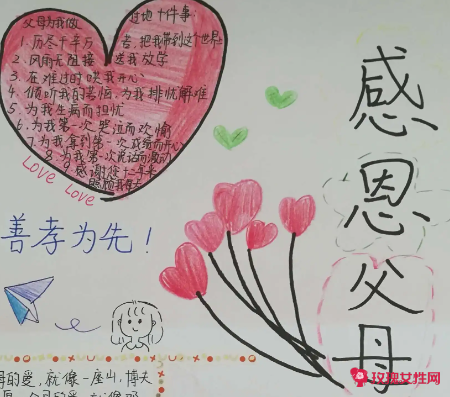 父母为我做 过地十件事:
1、历尽千辛万 苦,把我带到这个世界
2、风雨无阻接 送我放学
3、在难过时哄我开心
4、倾听我的苦恼,为我排忧解难
5、为我生病而担忧
6、为我第一次哭泣而欢愉
7、为我拿到第一次成绩而开心
8、为我第一次说话而激动
感谢您十二年来
Love Love
善孝为先!
感恩父母
的爱,就像一座山,博大
玫瑰女性网